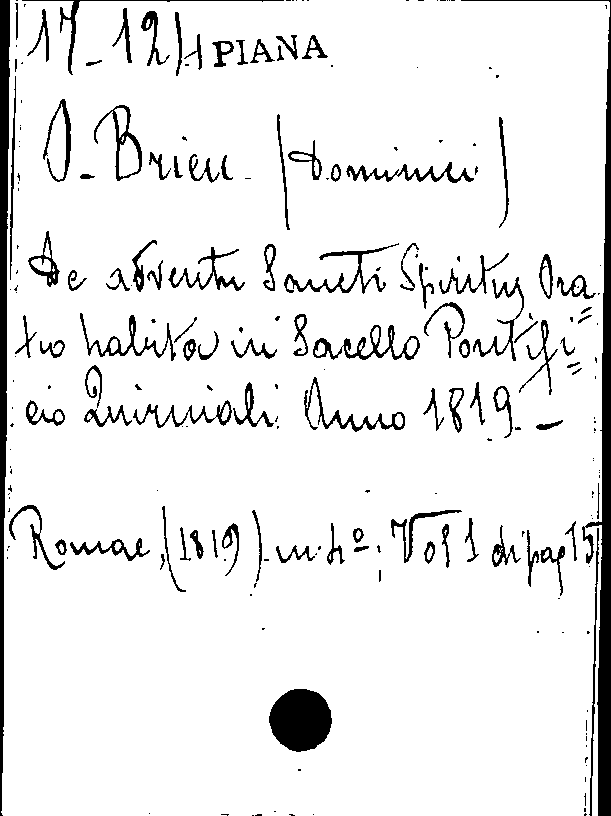 17-12/1 PIANA
O-Brien (Dominici)
De adventu Sancti Spiritus Ora=
tio habita in Sacello Pontifi=
cio Quirinali Anno 1819-
Romae, (1819) in 4º; Vol 1 di pag 15